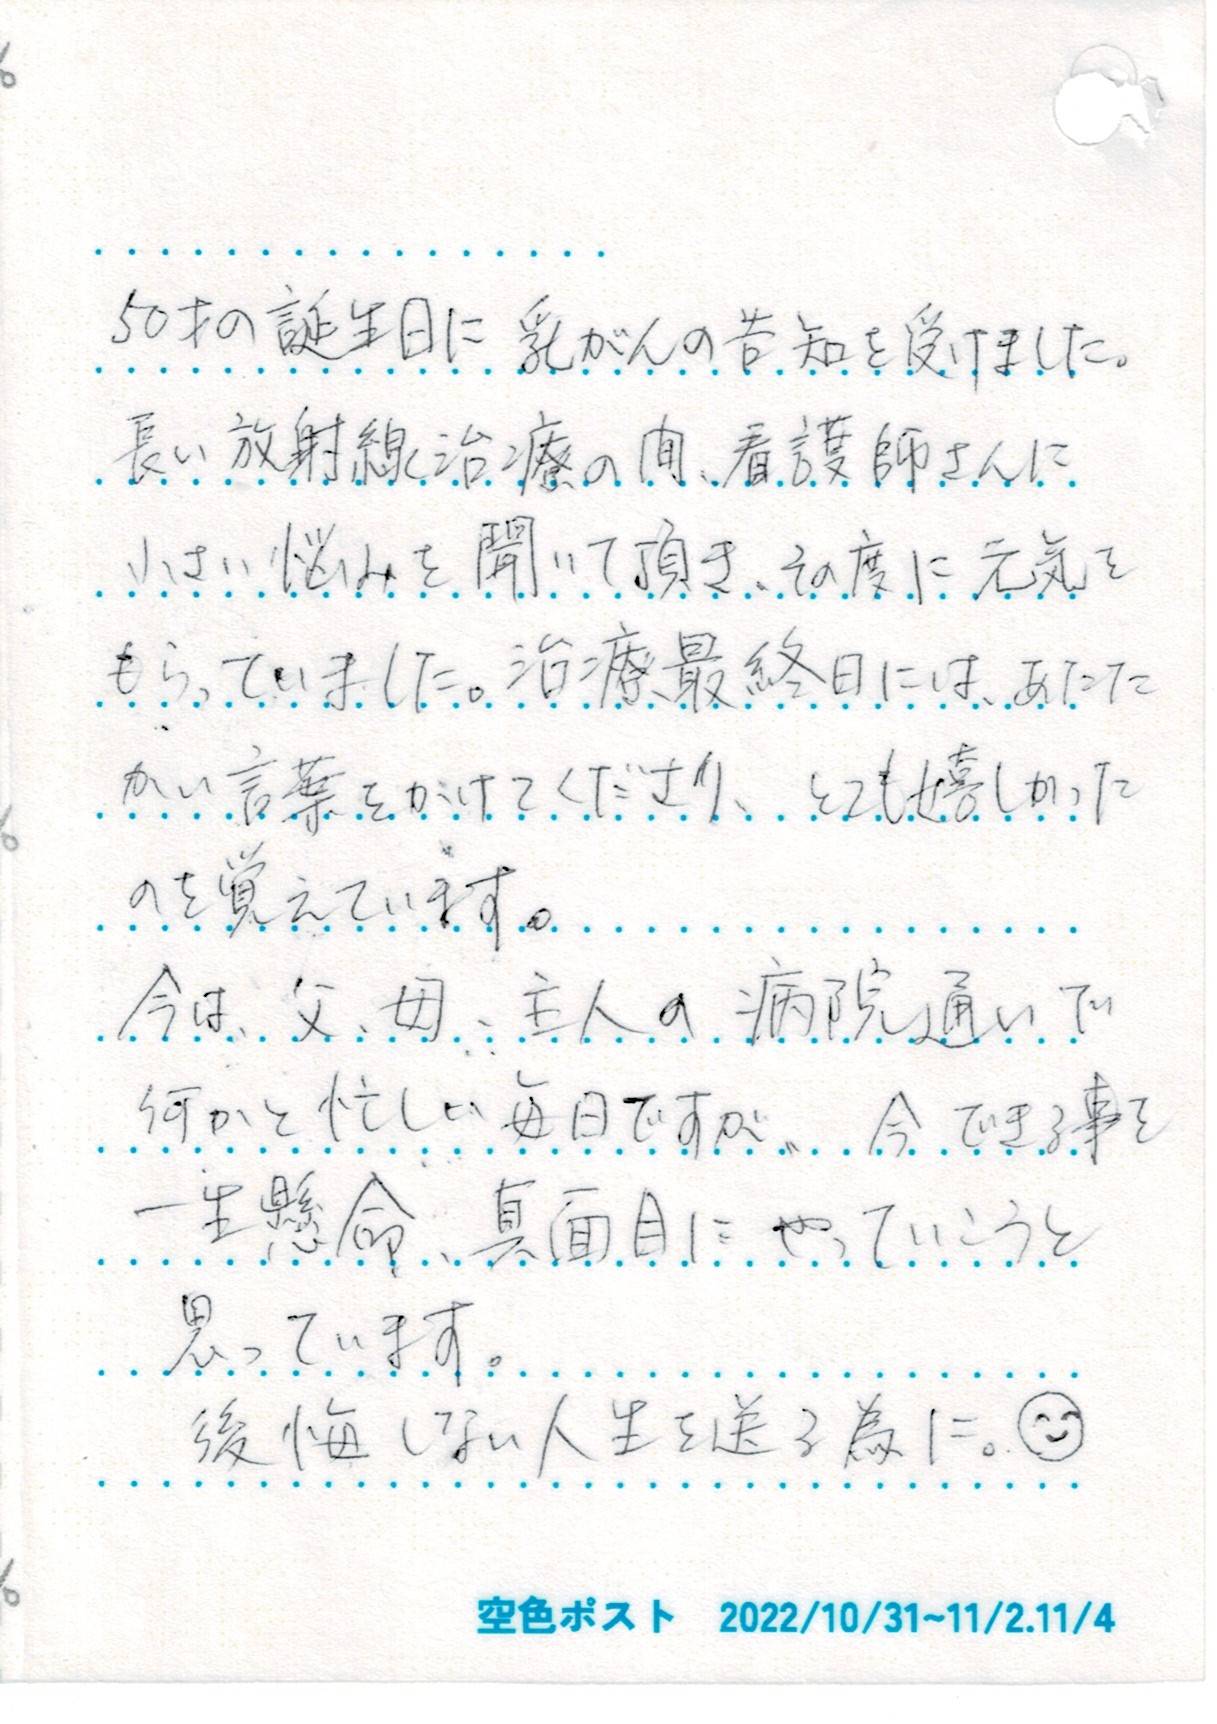 50才の誕生日に 乳がんの告知を受けました。
長い放射線治療の間、看護師さんに
小さい悩みを聞いて頂き、その度に元気を
もらっていました。治療最終日には、あたた
かい言葉をかけてくださり、とても嬉しかった
のを覚えています。
今は、父、母、主人の 病院通いで
何かと忙しい毎日ですが、今できる事を
一生懸命、真面目にやっていこうと
思っています。
後悔しない人生を送る為に。
空色ポスト 2022/10/31~11/2.11/4